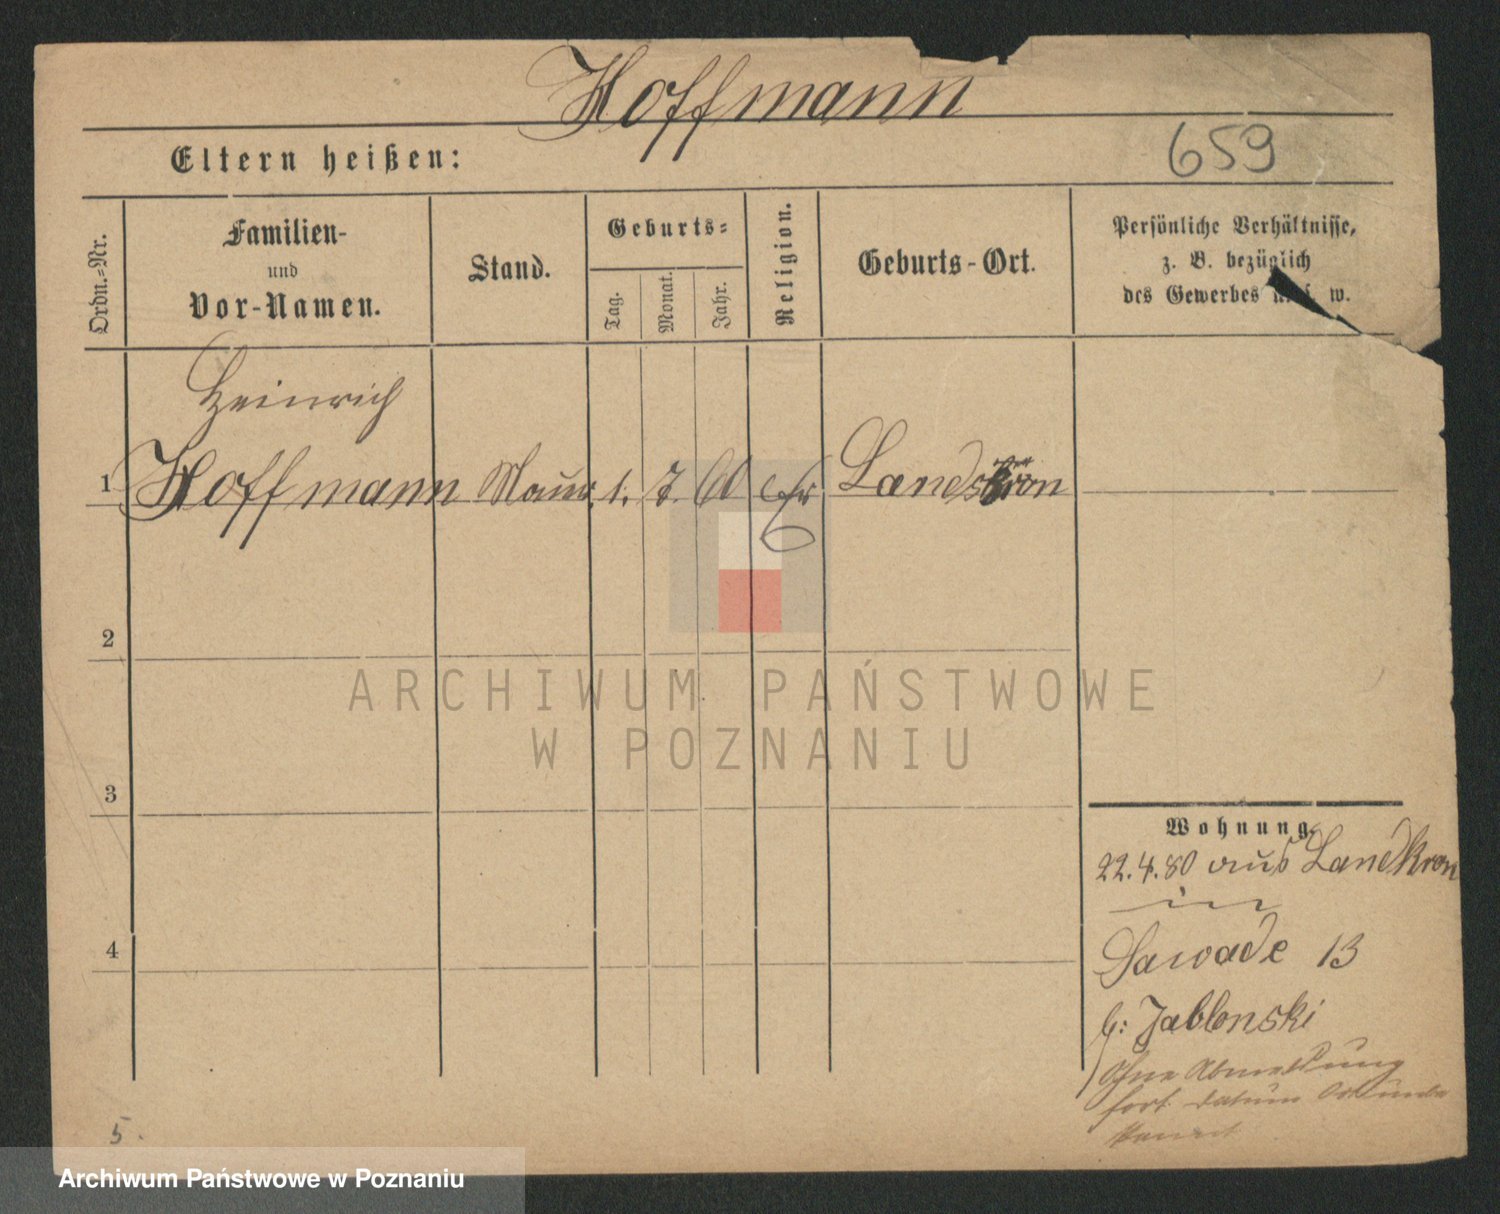 Hoffmann
Eltern heißen:
659
Ordn.-Nr.
Familien-
und
Vor-Namen.
Stand.
Geburts-
Tag.
Monat.
Jahr.
Religion.
Geburts-Ort.
Persönliche Verhältnisse,
z. B. bezüglich
des Gewerbes u. s. w.
Heinrich
1 Hoffmann Maurer 1. 7. 60 Landskron
2
3
4
Wohnung.
22.4.80 aus Landkron
in
Sawade 13
b: Jablonski
Ohne Abmeldung
fort
5.
ARCHIWUM PAŃSTWOWE
W POZNANIU
Archiwum Państwowe w Poznaniu